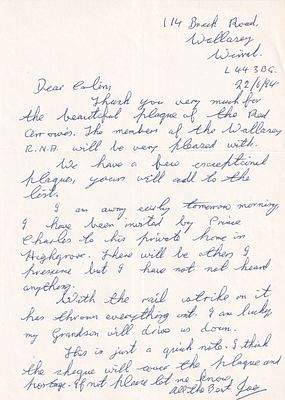 114 Breck Road,
Wallasey
Wirral.
L44 3BG.
22/6/94
Dear Colin,
Thank you very much for
the beautiful plaque of the Red
Arrows. The members of the Wallasey
R.N.A. will be very pleased with.
We have a few exceptional
plaques, yours will add to the
list.
I am away early tomorrow morning,
I have been invited by Prince
Charles to his private home in
Highgrove. There will be others I
presume but I have not heard
anything.
With the rail strike on it
has thrown everything out. I am lucky
my Grandson will drive us down.
This is just a quick note. I think
the cheque will cover the plaque and
postage. If not please let me know
All the Best Joe